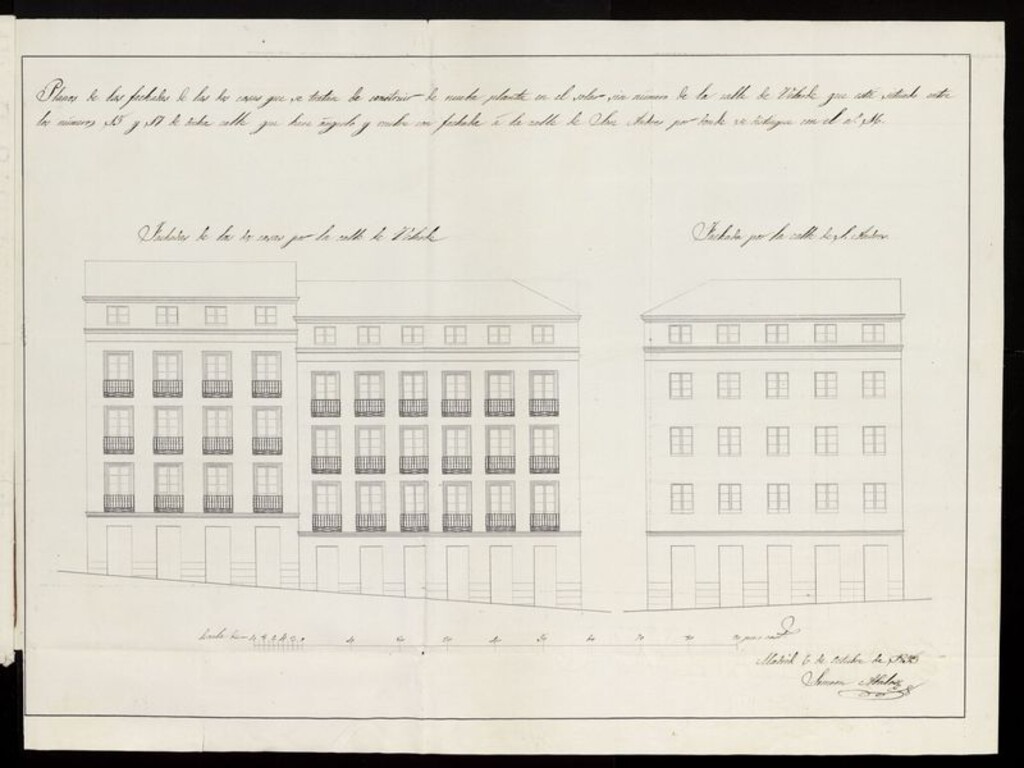 Planos de las fachadas de las dos casas que se tratan de construir de nueva planta en el solar sin número de la calle de Velarde que está situado entre
los números 15 y 17 de dicha calle que hace ángulo y vuelve con fachada á la calle de San Andres por donde se distingue con el nº
Fachadas de las dos casas por la calle de Velarde
Fachada por la calle de S. Andres
Escala 10 20 30 40 50 60 70 80 90 pies
Madrid 6 de octubre de